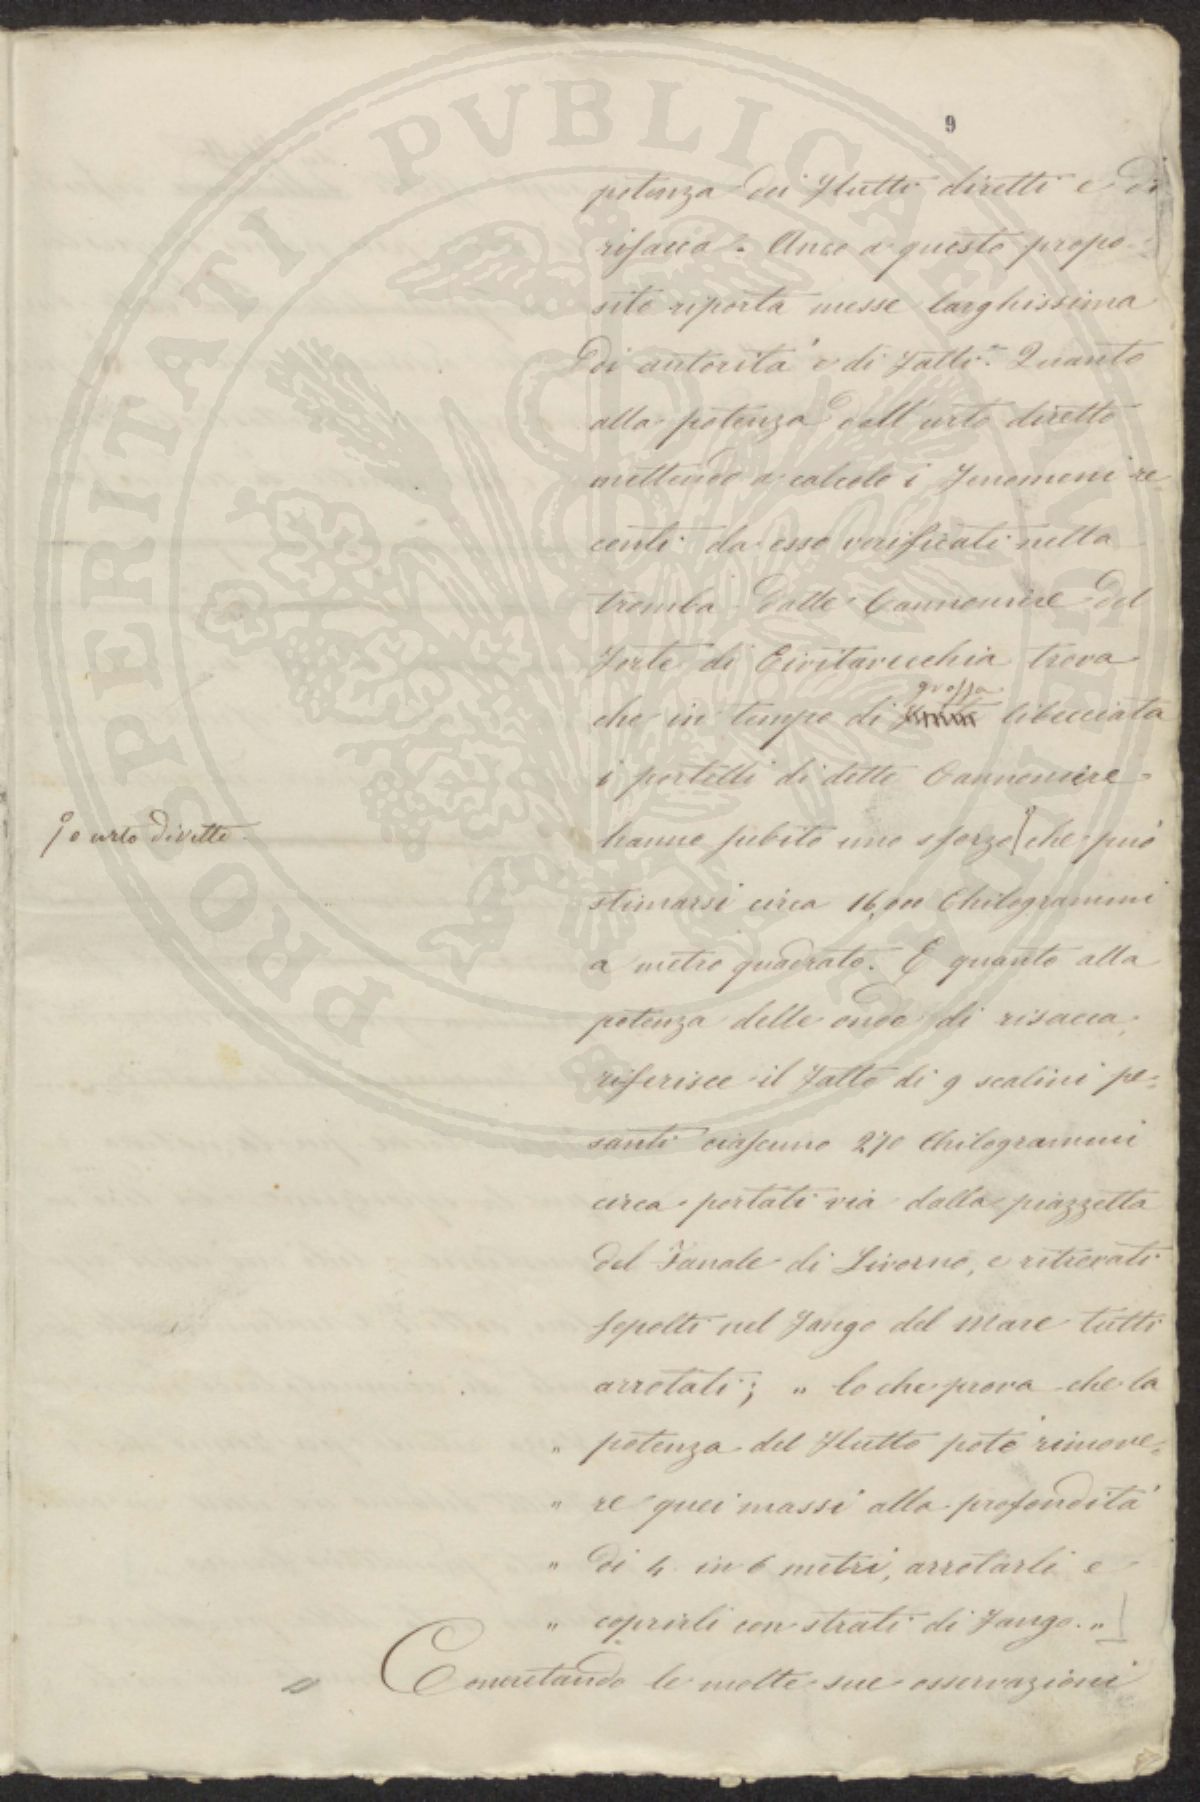 9
potenza dei flutti diretti e di
risacca. Anco a questo propo-
sito riporta messe larghissima
di autorità e di fatti. Quanto
alla potenza dell'urto diretto
mettendo a calcolo i fenomeni re-
centi da esso verificati nella
tromba dalle Cannoniere del
Forte di Civitavecchia trova
che in tempo di grossa libecciata
i portelli di dette Cannoniere
hanno subito uno sforzo che può
o urto diretto
stimarsi circa 16,000 Chilogrammi
a metro quadrato. E quanto alla
potenza delle onde di risacca,
riferisce il fatto di 9 scalini pe-
santi ciascuno 270 Chilogrammi
circa portati via dalla piazzetta
del Fanale di Livorno, e ritrovati
sepolti nel fango del mare tutti
arrotati; „ lo che prova che la
„ potenza del flutto potè rimove-
„ re quei massi alla profondità
„ di 4 in 6 metri, arrotarli e
„ coprirli con strati di fango. „
Concretando le molte sue osservazioni
PROSPERITATI PVBLICAE AVGENDAE